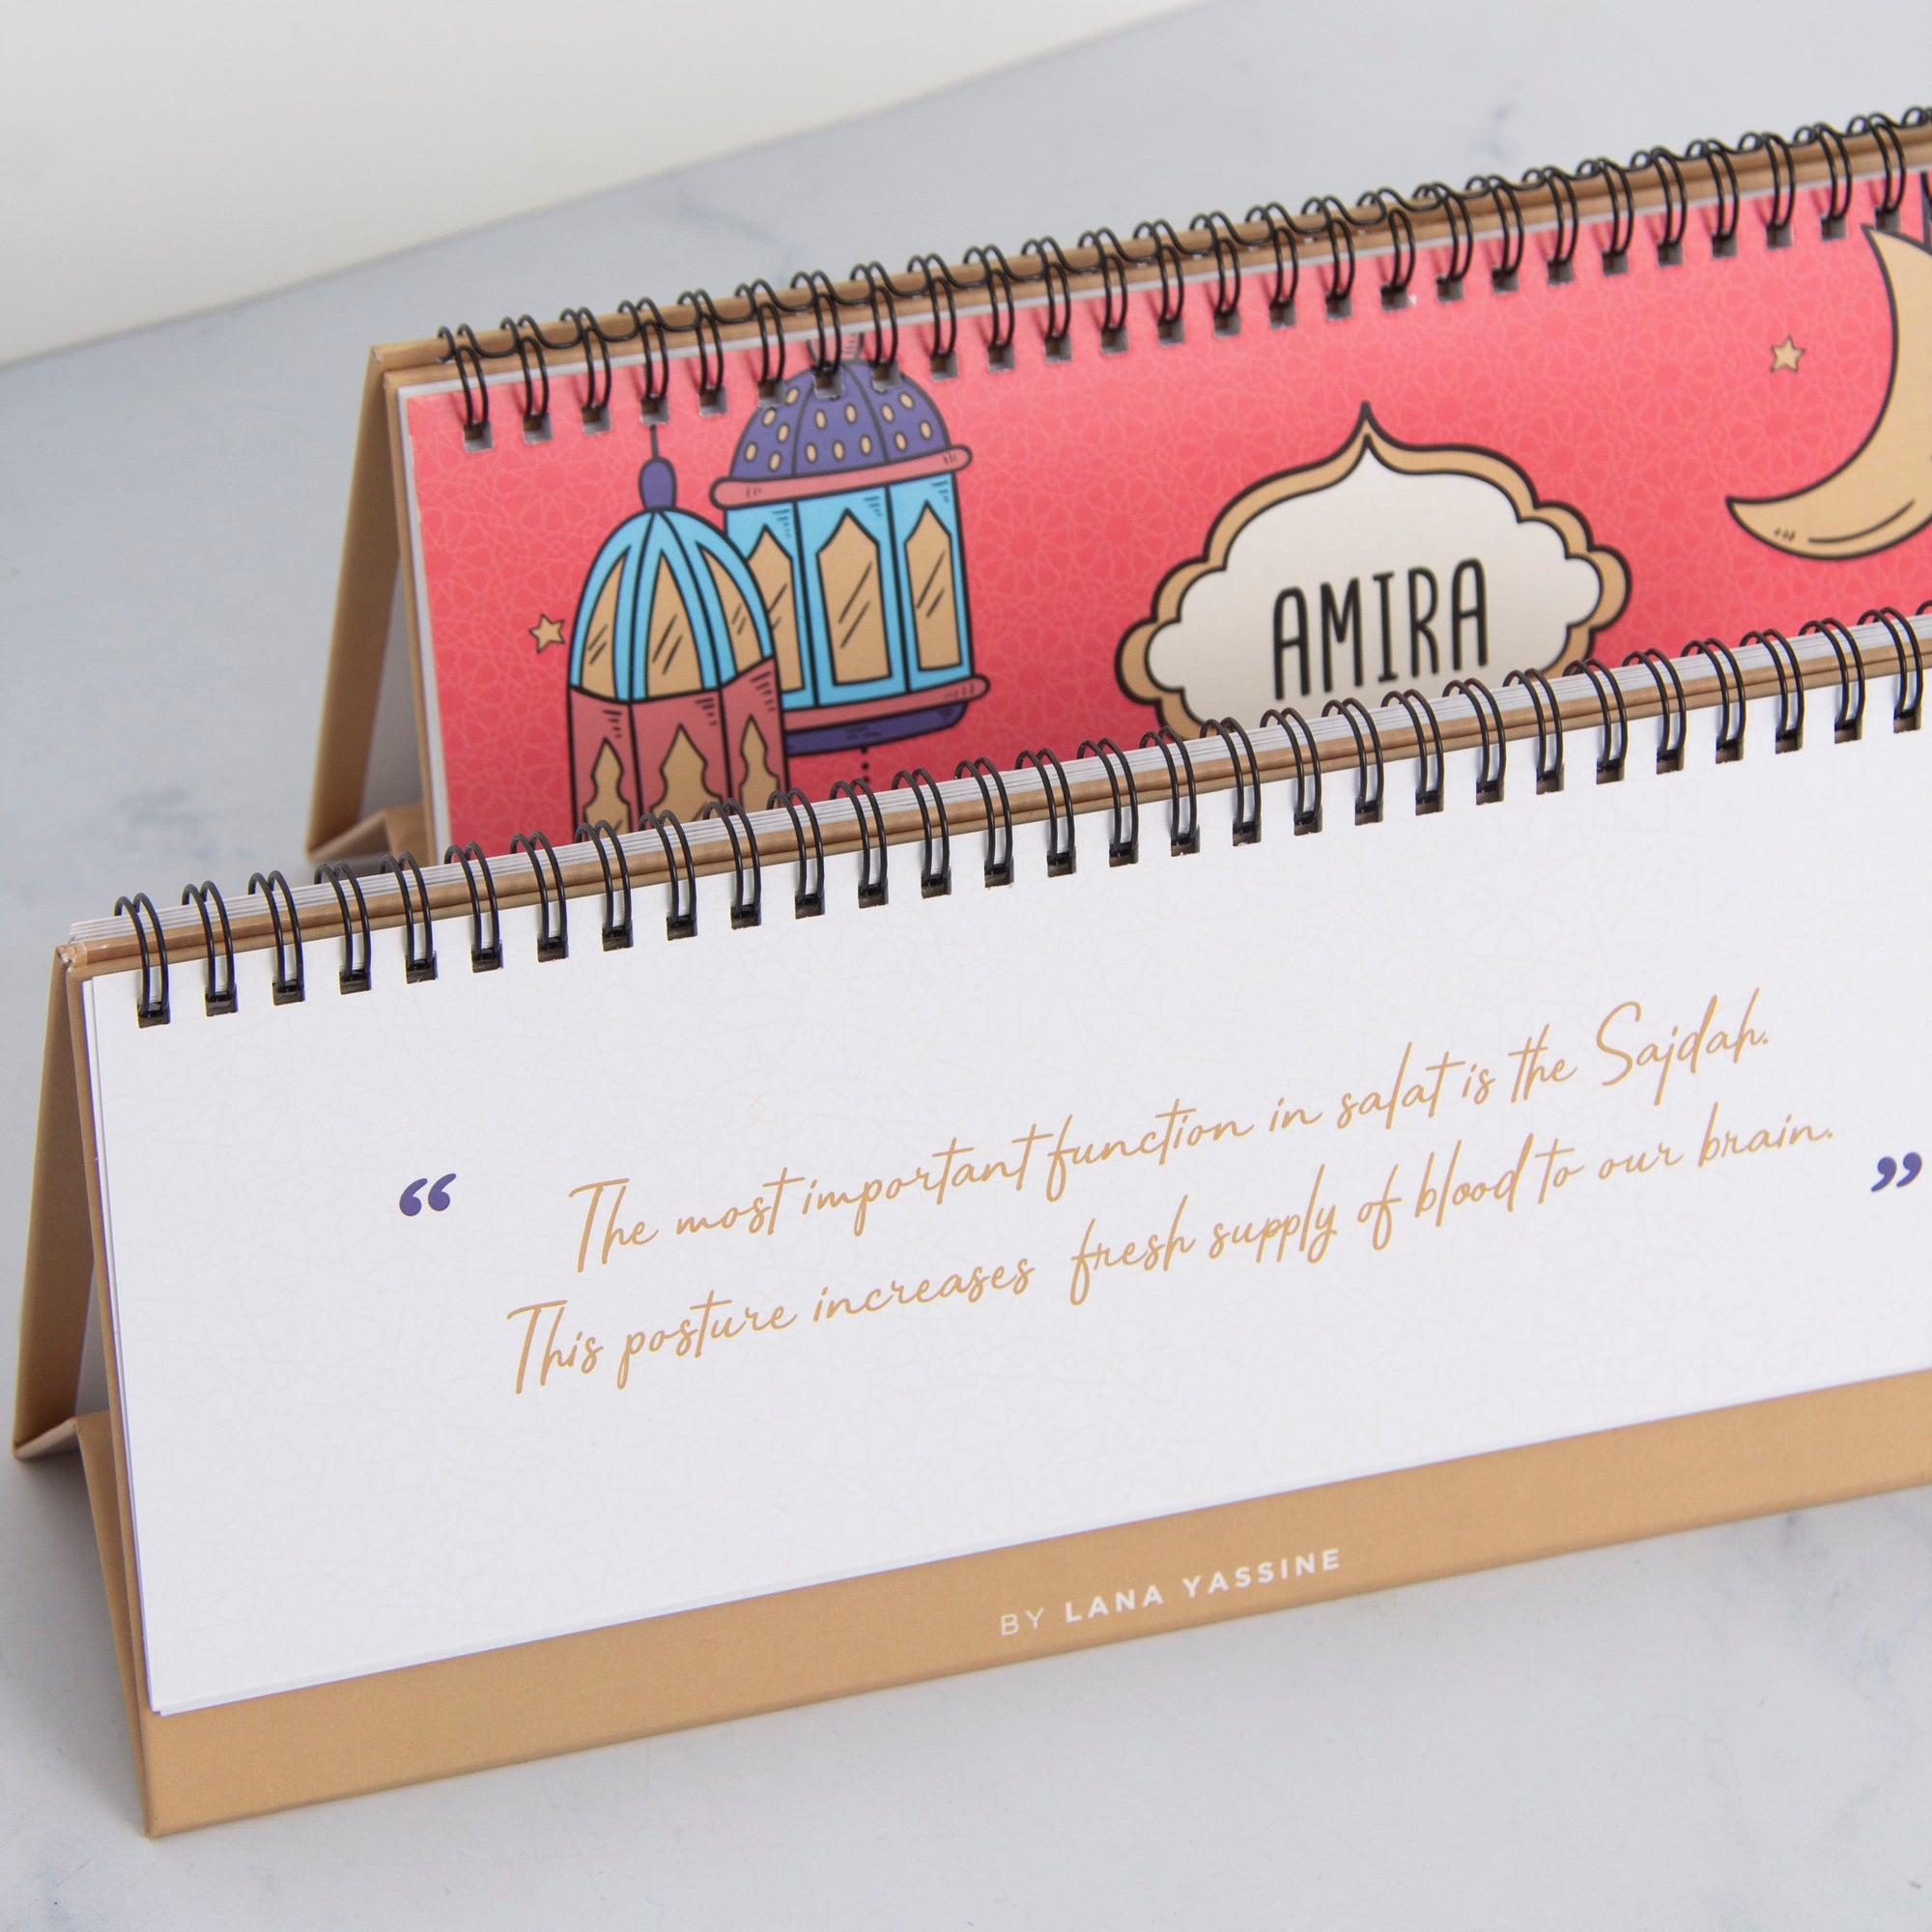 AMIRA
“ The most important function in salat is the Sajdah.
This posture increases fresh supply of blood to our brain. ”
BY LANA YASSINE